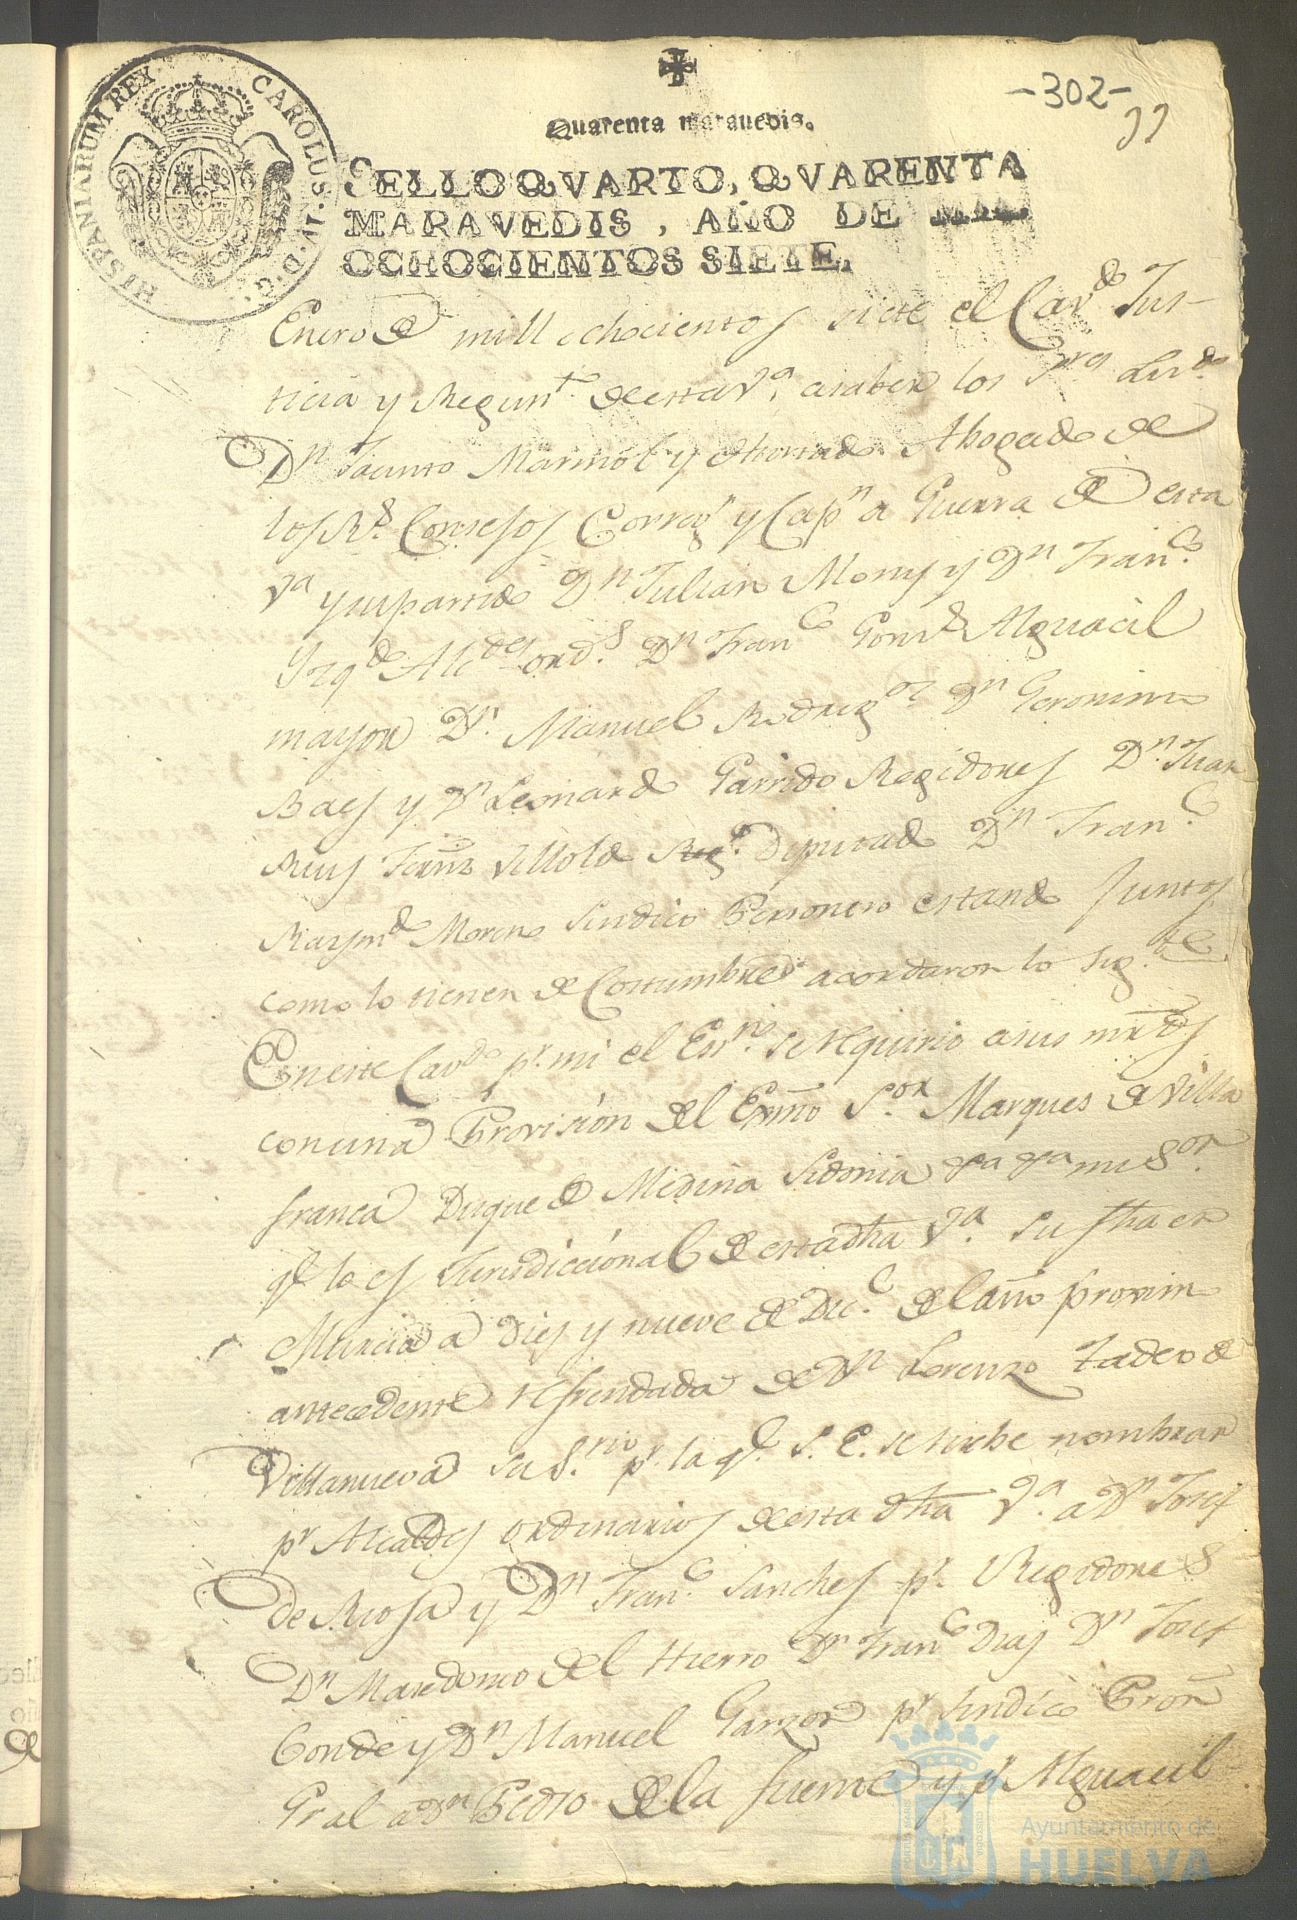 -302-
HISPANIARUM REX CAROLUS. IV. D. G.
Quarenta maravedis.
SELLO QVARTO, QVARENTA
MARAVEDIS, AÑO DE MIL
OCHOCIENTOS SIETE.
Enero de mill ochocientos siete el Cavdo Jus-
ticia y Regimto de esta Va. a saber los Sres Licdo
Dn Jacinto Marmol y Hurtado Abogado de
los Rs. Consejos Corregr y Capn a Guerra de esta
Va y su partido Dn Julian Mony y Dn Franco
Izqdo Alcdes ords. Dn Franco Gonz Alguacil
mayor Dn. Manuel Rodrigz Dn Geronimo
Baes y Dn Leonardo Garrido Regidores Dn. Juan
Ruis Diputado Dn Franco
Raymdo Moreno Sindico Personero estando Juntos
como lo tienen de Costumbre acordaron lo sigte
En este Cavdo pr. mi el Essno. se requirio a sus mrds
con una Provision del Exmo Sor Marques de Villa
franca Duque de Medina Sidonia mi Sor.
qe lo es Jurisdiccional de esta dha Va. su fha en
Murcia a dies y nueve de Dice. del año proximo
antecedente refrendada de Dn Lorenzo Tadeo de
Villanueva su Srio pr. la qe. S. E. se sirbe nombrar
pr Alcaldes ordinarios de esta dha Va. a Dn Josef
de Riosa y Dn Franco Sanches pr. Regidores
Dn Macedonio del Hierro Dn Franco Dias Dn Josef
Conde y Dn Manuel Garzon pr Sindico Pror
Gral a Dn Pedro de la fuente y pr Alguacil
Ayuntamiento de
HUELVA